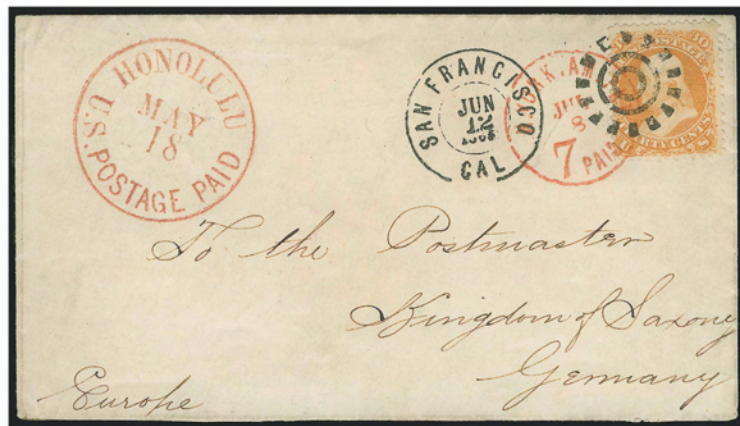 HONOLULU
MAY
18
U.S. POSTAGE PAID
SAN FRANCISCO
JUN
12
CAL
8
7 PAID
30
POSTAGE
CENTS
To the Postmaster
Kingdom of Saxony
Germany
Europe